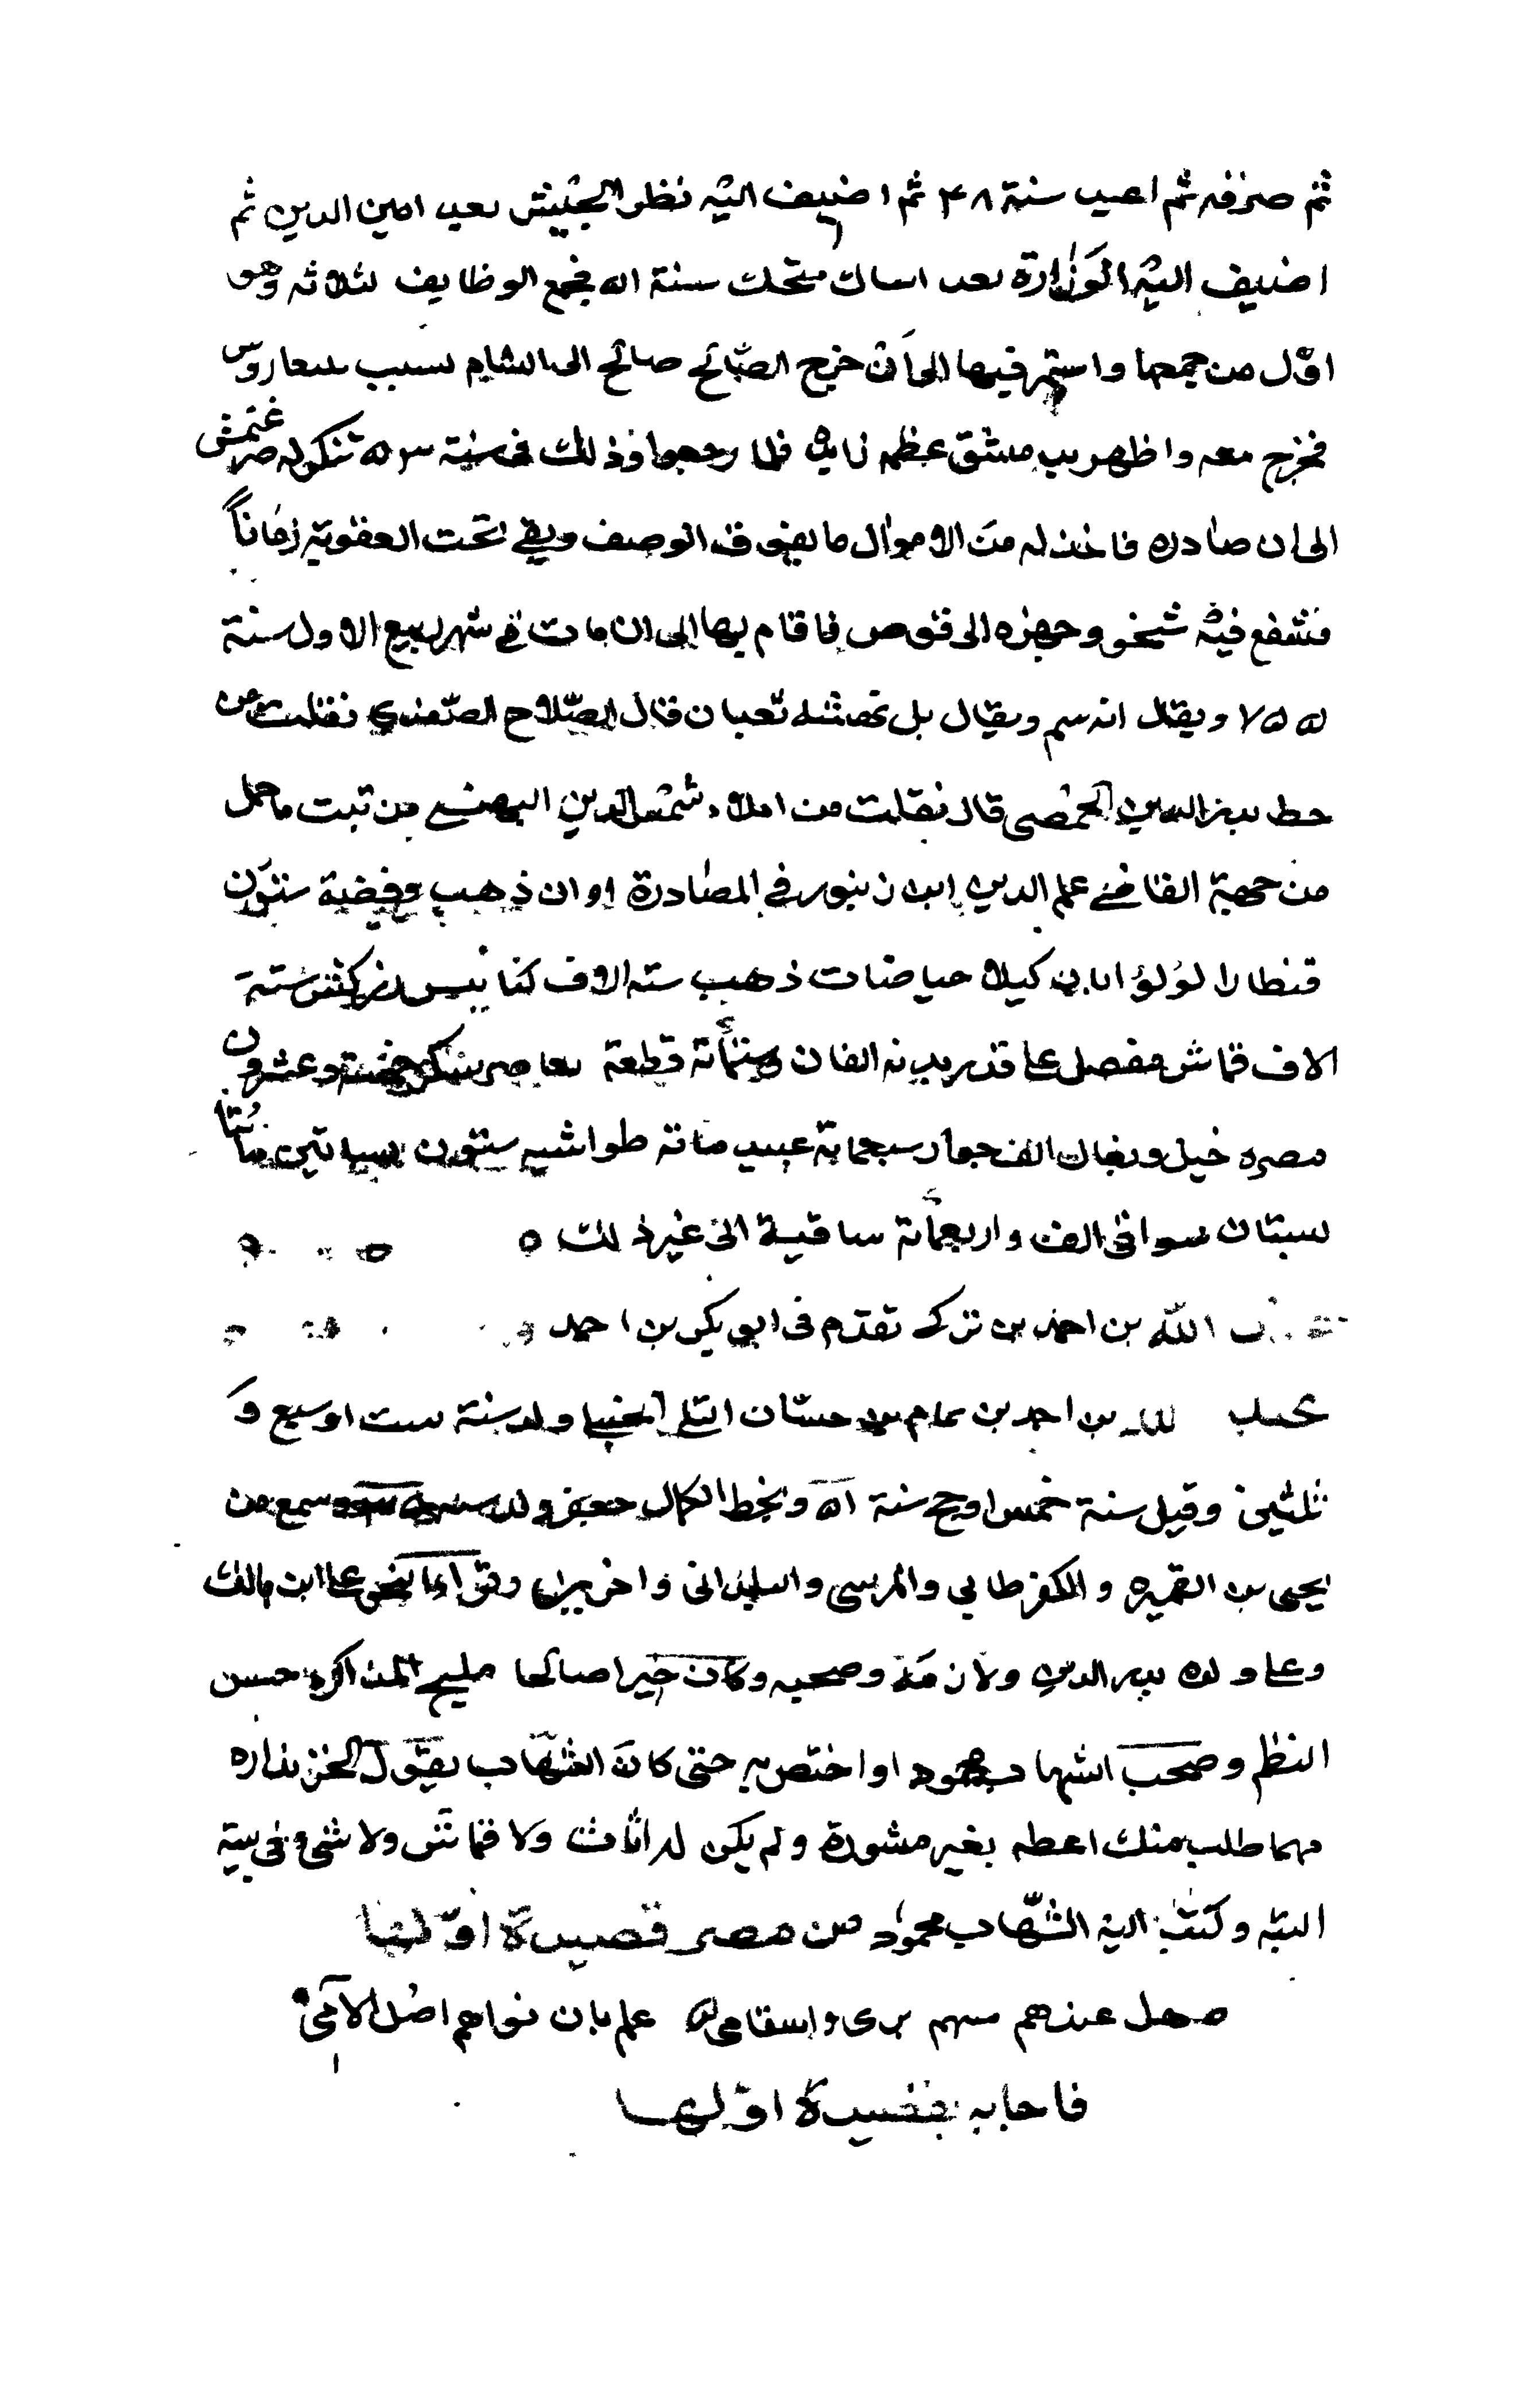 ثم صرفه ثم اعيد سنة ٤٨ ثم اضيف اليه نظر الجيش بعد امين الدين ثم
اضيف اليه الوزارة بعد امساك منجك سنة ٥١ فجمع الوظايف لثلاثه وهو
اوّل من جمعها واستمر فيها الى أن خرج الصّالح صالح الى الشام بسبب ببيعاروس
فخرج معه واظهر بدمشق عظمه زايدة فلما رجعوا وذلك في سنة ٥٣ تنكر له صرغتمش
الى ان صادره فاخذ له من الاموال ما يفوق الوصف وبقي تحت العقوبة زماناً
فشفع فيه شيخو وجهزه الى قوص فاقام بها الى ان مات في شهر ربيع الاول سنة
٧٥٥ ويقال انه سم ويقال بل نهشته ثعبان قال الصّلاح الصّفدي نقلت من
خط بدر الدين الحمصي قال نقلت من املاء شمس الدين البهنسي من ثبت ما حمل
من جهة القاضي علم الدين ابن زنبور في المصادرة اوان ذهب وفضة ستون
قنطارا لؤلؤ اردبان كيلا حياصات ذهب سته الاف كنابيس زركش ستة
الاف قماش مفصل على قدر بدنه الفان وستمأنة قطعة معاصر سكر خمسة وعشرون
معصره خيل وبغال الف جوار سبعماية عبيد مائة طواشيه ستون بساتين مائتا
بستان سواقى الف واربعمأنة ساقية الى غير ذلك ٥
الله بن احمد بن تركي تقدم في ابي بكر بن احمد
عبد الله بن احمد بن تمام بن حسّان التلي الحنبلي ولد سنة ست او سبع و
ثلثين وقيل سنة خمس وحج سنة ٥١ وبخط الكمال جعفر ولد سنة وسمع من
يحيى بن القميره والكفرطابي والمرسي واليلداني واخرين وقرا النحو على ابن مالك
وعلى ولده بدر الدين ولازمه وصحبه وكان خيرا صالحا مليح المذاكرة حسن
النظم وصحب الشهاب محمود او اختص به حتى كان الشهاب يقول لخزنداره
مهما طلب منك اعطه بغير مشورة ولم يكن له اثاث ولا قماش ولا شئ في بيته
البته وكتب اليه الشّهاب محمود من مصر قصيدة اوّلها
هل عند من عندهم برى واسقامى علم بان نواهم اصل الآمي
فاجابه بقصيدة اوّلها